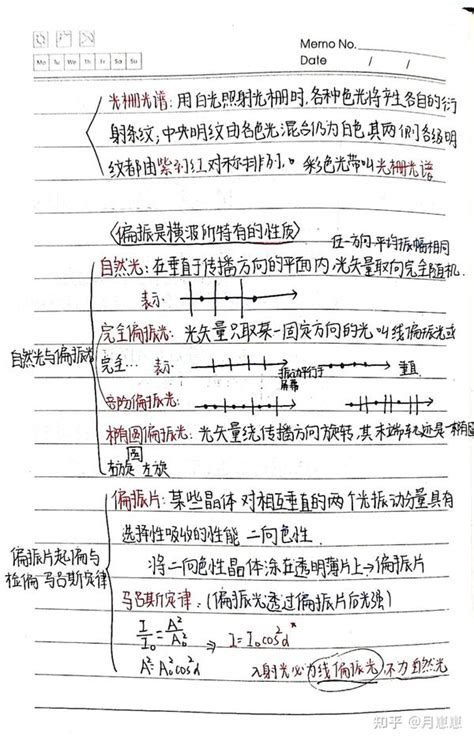 Memo No.
Mo Tu We Th Fr Sa Su
Date / /
光栅光谱: 用白光照射光栅时,各种色光将产生各自的衍
射条纹; 中央明纹由各色光混合仍为白色,其两侧各级明
纹都由紫到红对称排列。彩色光带叫光栅光谱
〈偏振是横波所特有的性质〉
在一方向平均振幅相同
自然光: 在垂直于传播方向的平面内,光矢量取向完全随机.
表示
完全偏振光: 光矢量只取某一固定方向的光 叫线偏振光或
自然光与偏振光
完全… 表示
振动平行于屏幕
垂直
部分偏振光:
椭圆偏振光: 光矢量绕传播方向旋转,其末端轨迹是一椭圆
圆
右旋 左旋
偏振片: 某些晶体 对相互垂直的两个光振动分量具有
选择性吸收的性能 二向色性.
偏振片起偏与
检偏 马吕斯定律
将二向色性晶体涂在透明薄片上→偏振片
马吕斯定律: (偏振光透过偏振片后光强)
I/I₀ = A²/A₀² ⇒ I=I₀cos²α *
A²=A₀²cos²α 入射光必为线偏振光,不为自然光
知乎 @月崽崽